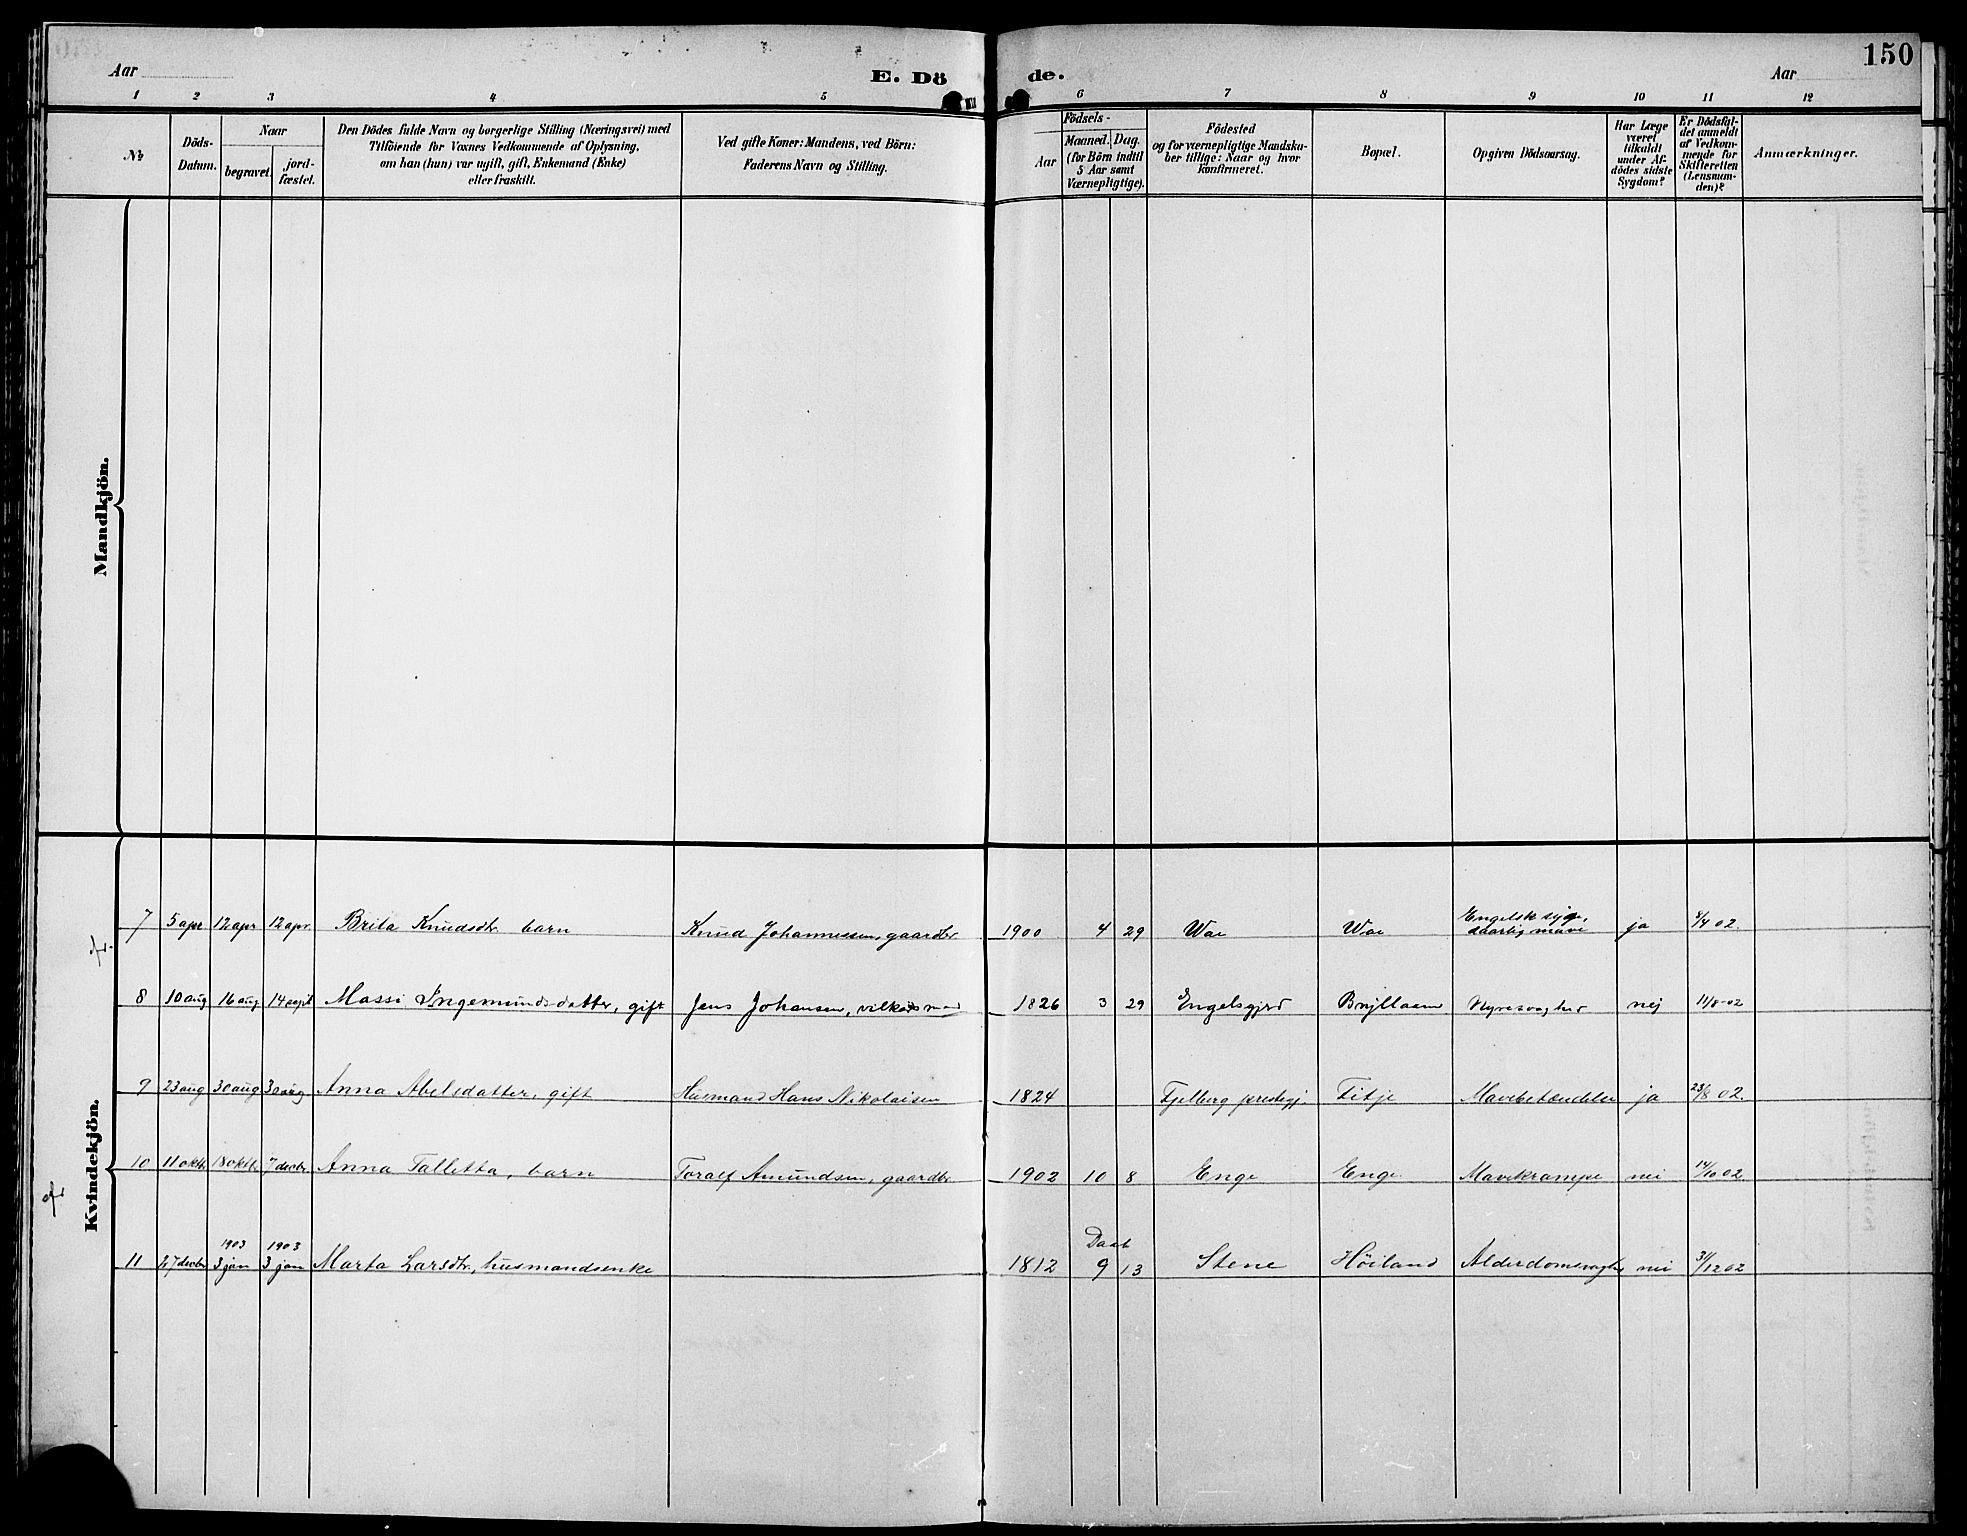 150
Aar
E. Dö
de.
Aar
1 2 3 4 5 6 7 8 9 10 11 12
№
Döds-
Datum.
Naar
begravet.
jord-
fæstet.
Den Dödes fulde Navn og borgerlige Stilling (Næringsvei) med
Tilföiende for Voxnes Vedkommende af Oplysning,
om han (hun) var ugift, gift, Enkemand (Enke)
eller fraskilt.
Ved gifte Koner: Mandens, ved Börn:
Faderens Navn og Stilling.
Födsels-
Aar
Maaned. Dag.
(for Börn indtil
5 Aar samt
Værnepligtige).
Födested
og for værnepligtige Mandska-
ber tillige: Naar og hvor
konfirmeret.
Bopæl.
Opgiven Dödsaarsag.
Har Læge
været
tilkaldt
under Af-
dödes sidste
Sygdom?
Er Dödsfal-
det anmeldt
af Vedkom-
mende for
Skifteretten
(Lensman-
den)?
Anmærkninger.
Mandkjön.
Kvindekjön.
Engelsk syge,
7 5 apr 12 apr 12 apr. Brita Knudsdtr. barn Knud Johannessen, gaardbr. 1900 4 29 Wae Wae daarlig mave ja 8/4 02.
8 10 aug 16 aug 14 sept Massi Ingemundsdatter, gift Jens Johansen, 1826 3 29 Engelsgjerd nej 11/8-02
9 23 aug 30 aug 30 aug Anna Abelsdatter, gift Husmand Hans Nikolaisen 1824 Fjelberg prestegj. Titje Mavebetændelse ja 23/8 02.
10 11 oktb. 18 oktb. 7 decbr. Anna Talletta, barn Toralf Amundsen, gaardbr. 1902 10 8 Enge Enge Mavekrampe nei 14/10 02
1903 1903 Daab
11 27 decbr 3 jan 3 jan Marta Larsdtr., husmandsenke 1812 9 13 Stene Høiland Alderdomssvaghed nei 31/12 02